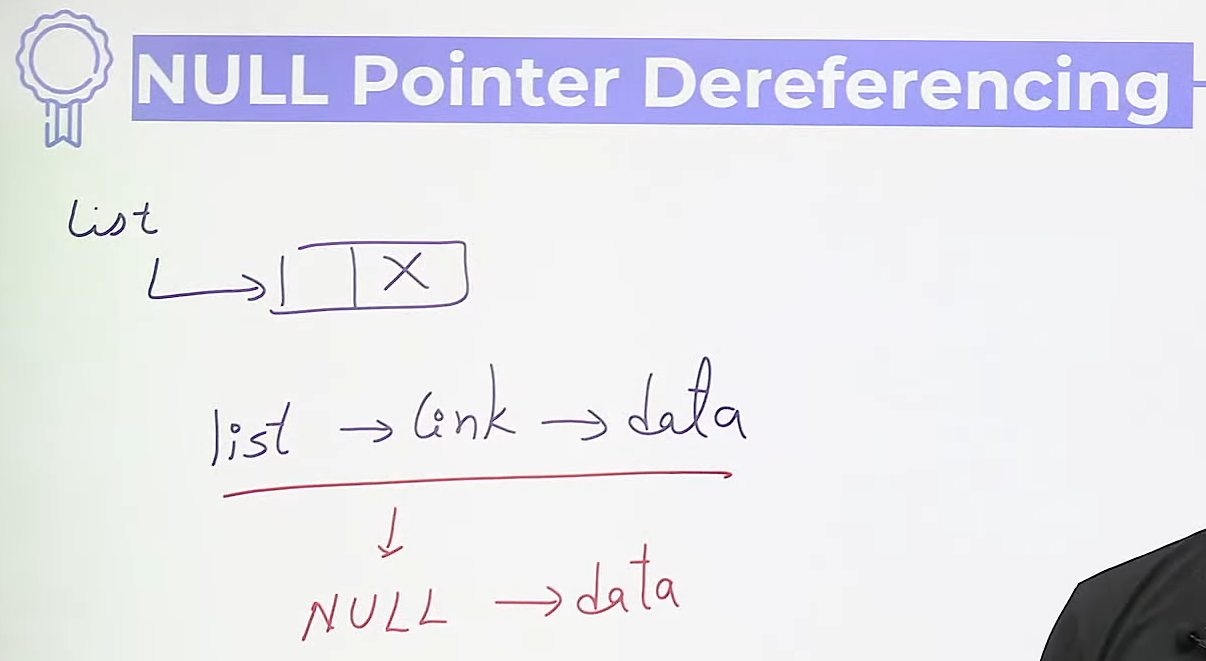 NULL Pointer Dereferencing
list
X
list → link → data
↓
NULL → data